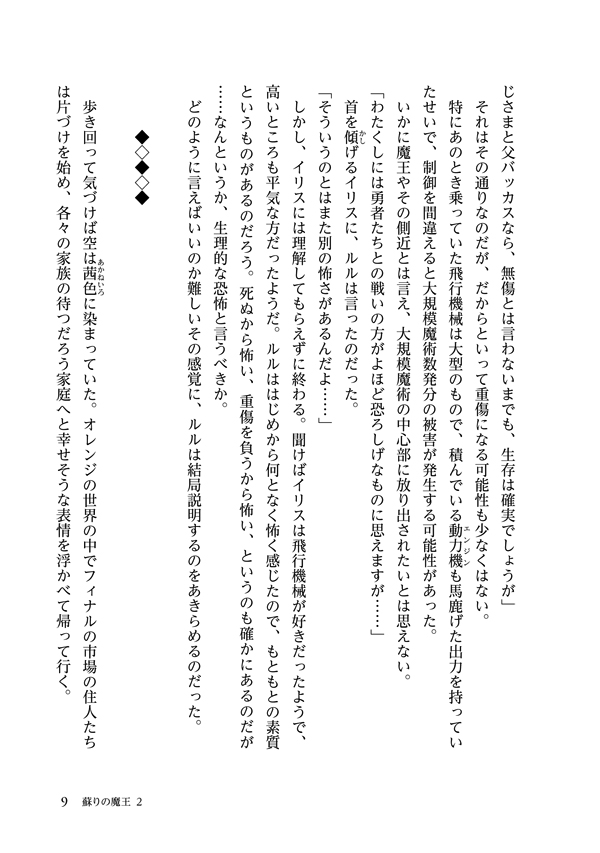 じさまと父バッカスなら、無傷とは言わないまでも、生存は確実でしょうが」
それはその通りなのだが、だからといって重傷になる可能性も少なくはない。
特にあのとき乗っていた飛行機械は大型のもので、積んでいる動力機も馬鹿げた出力を持ってい
エンジン
たせいで、制御を間違えると大規模魔術数発分の被害が発生する可能性があった。
いかに魔王やその側近とは言え、大規模魔術の中心部に放り出されたいとは思えない。
「わたくしには勇者たちとの戦いの方がよほど恐ろしげなものに思えますが……」
首を傾げるイリスに、ルルは言ったのだった。
かし
「そういうのとはまた別の怖さがあるんだよ……」
しかし、イリスには理解してもらえずに終わる。聞けばイリスは飛行機械が好きだったようで、
高いところも平気な方だったようだ。ルルははじめから何となく怖く感じたので、もともとの素質
というものがあるのだろう。死ぬから怖い、重傷を負うから怖い、というのも確かにあるのだが
……なんというか、生理的な恐怖と言うべきか。
どのように言えばいいのか難しいその感覚に、ルルは結局説明するのをあきらめるのだった。
◆◇◆◇◆
歩き回って気づけば空は茜色に染まっていた。オレンジの世界の中でフィナルの市場の住人たち
あかねいろ
は片づけを始め、各々の家族の待つだろう家庭へと幸せそうな表情を浮かべて帰って行く。
9 蘇りの魔王 2